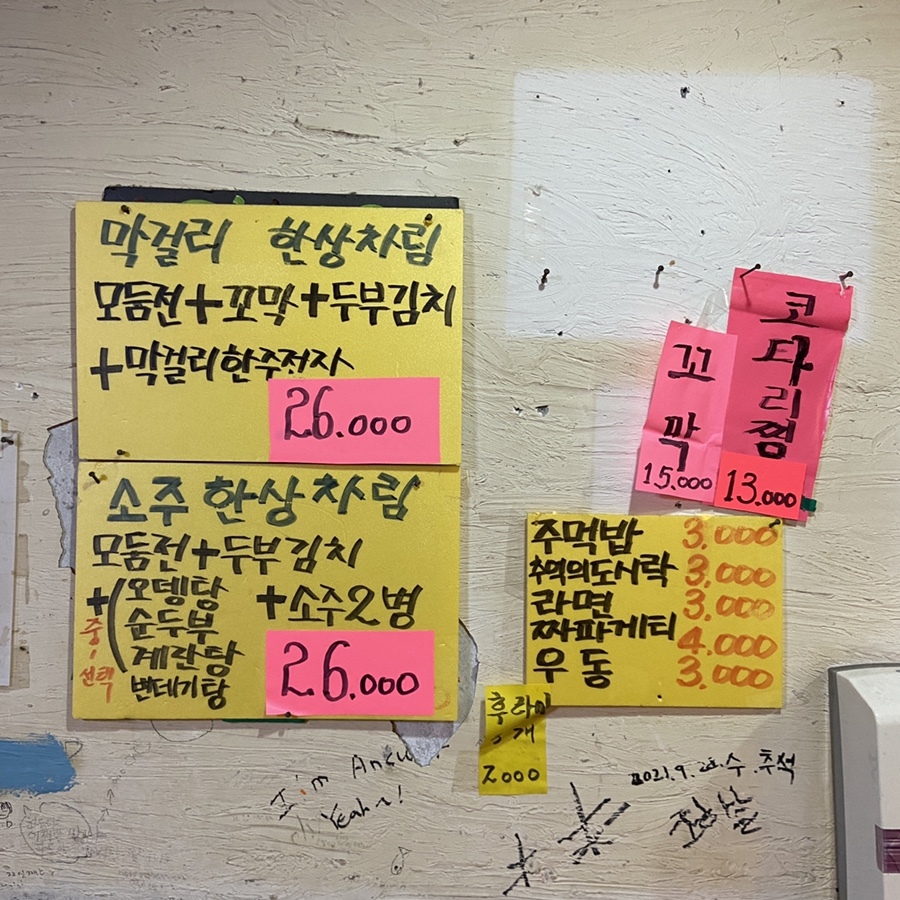 막걸리 한상차림
모둠전+꼬막+두부김치
+막걸리한주전자
26.000
소주 한상차림
모둠전+두부김치
+(오뎅탕
순두부
계란탕
번데기탕
중1
선택
+소주2병
26.000
코다리찜
13.000
꼬막
15.000
주먹밥 3.000
추억의도시락 3.000
라면 3.000
짜파게티 4.000
우동 3.000
후라이
2개
2000
I'm
Yeah~!
2021.9. 수.추석